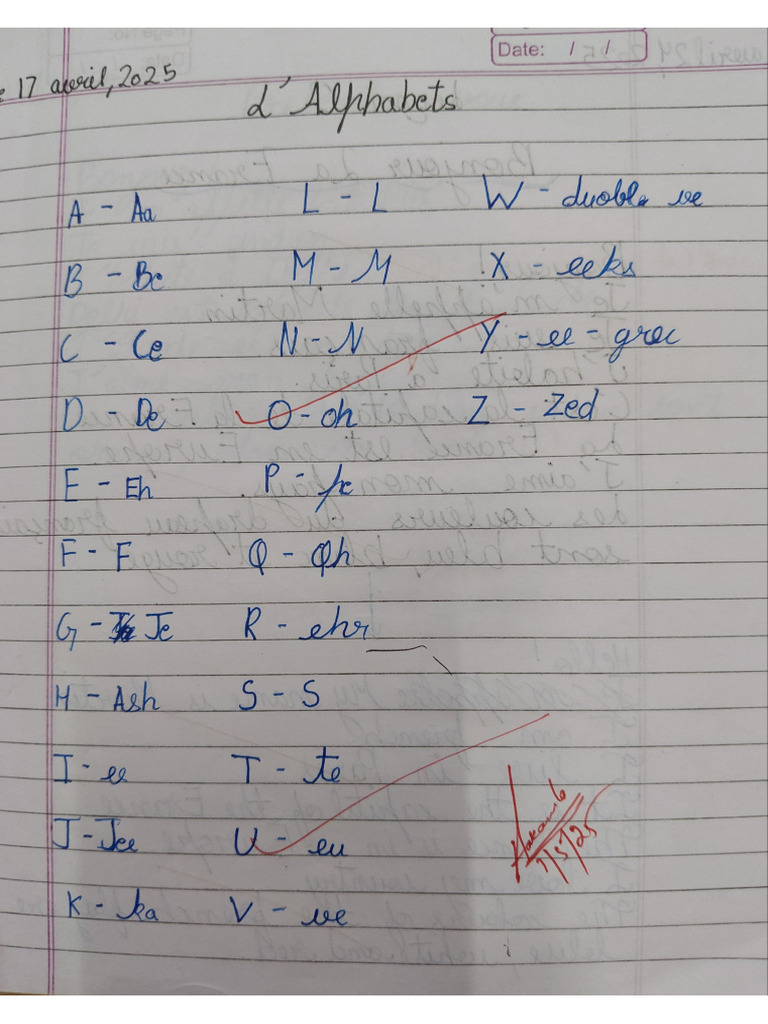 Date: / /
17 avril, 2025
L'Alphabets
A - Aa L - L W - duoble ve
B - Be M - M X - eeks
C - Ce N - N Y - ee - grec
D - De O - oh Z - Zed
E - Eh P - pe
F - F Q - Qh
G - Je R - ehr
H - Ash S - S
I - ee T - te
J - Jee U - eu
K - ka V - ve
1/5/25